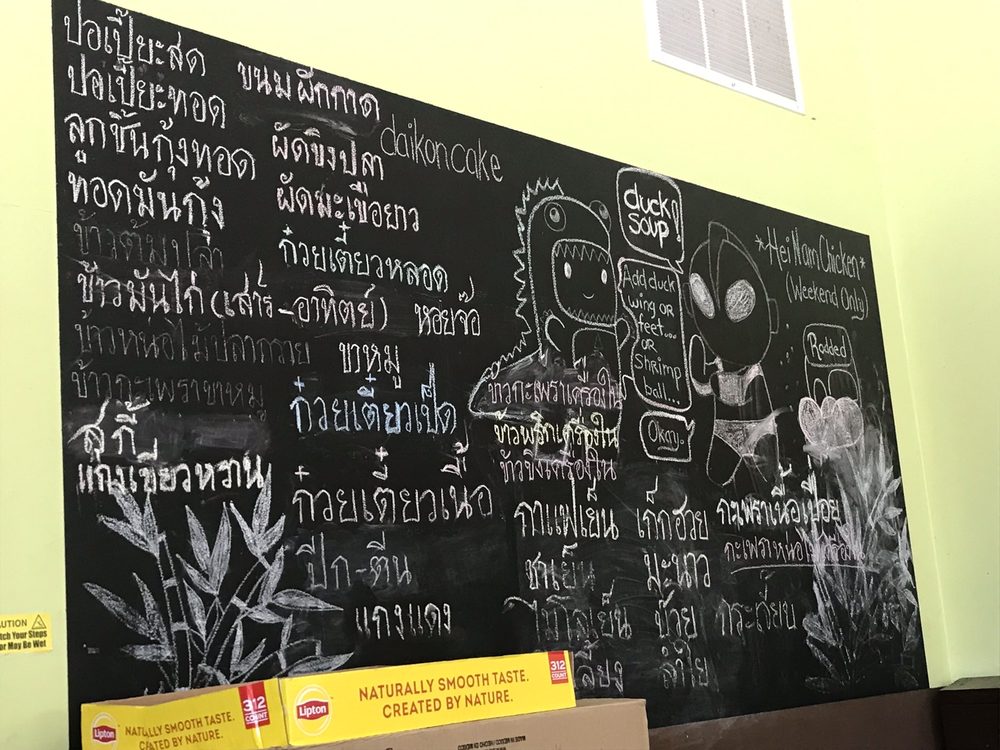 ปอเปี๊ยะสด
ปอเปี๊ยะทอด
ลูกชิ้นกุ้งทอด
ทอดมันกุ้ง
ข้าวต้มปลา
ข้าวมันไก่ (เสาร์-อาทิตย์)
ข้าวหน่อไม้ปลากราย
ข้าวกะเพราขาหมู
สุกี้
แกงเขียวหวาน
ขนมผักกาด
daikon cake
ผัดขิงปลา
ผัดมะเขือยาว
ก๋วยเตี๋ยวหลอด
หอยจ๊อ
ขาหมู
ก๋วยเตี๋ยวเป็ด
ก๋วยเตี๋ยวเนื้อ
ปีก-ตีน
แกงแดง
duck
soup!
Add duck
wing or
feet...
or
Shrimp
ball...
Okay.
*Hei Nam Chicken*
(Weekend Only)
ข้าวกะเพราเครื่องใน
ข้าวพริกเครื่องใน
ข้าวขิงเครื่องใน
กาแฟเย็น
ชาเย็น
เก็กฮวย
มะนาว
ลำไย
กะเพราเนื้อเปื่อย
กระเจี๊ยบ
CAUTION
Watch Your Steps
Floor May Be Wet
Lipton
NATURALLY SMOOTH TASTE.
CREATED BY NATURE.
312
COUNT
Lipton
NATURALLY SMOOTH TASTE.
CREATED BY NATURE.
312
COUNT
MADE IN MEXICO / HECHO EN MEXICO